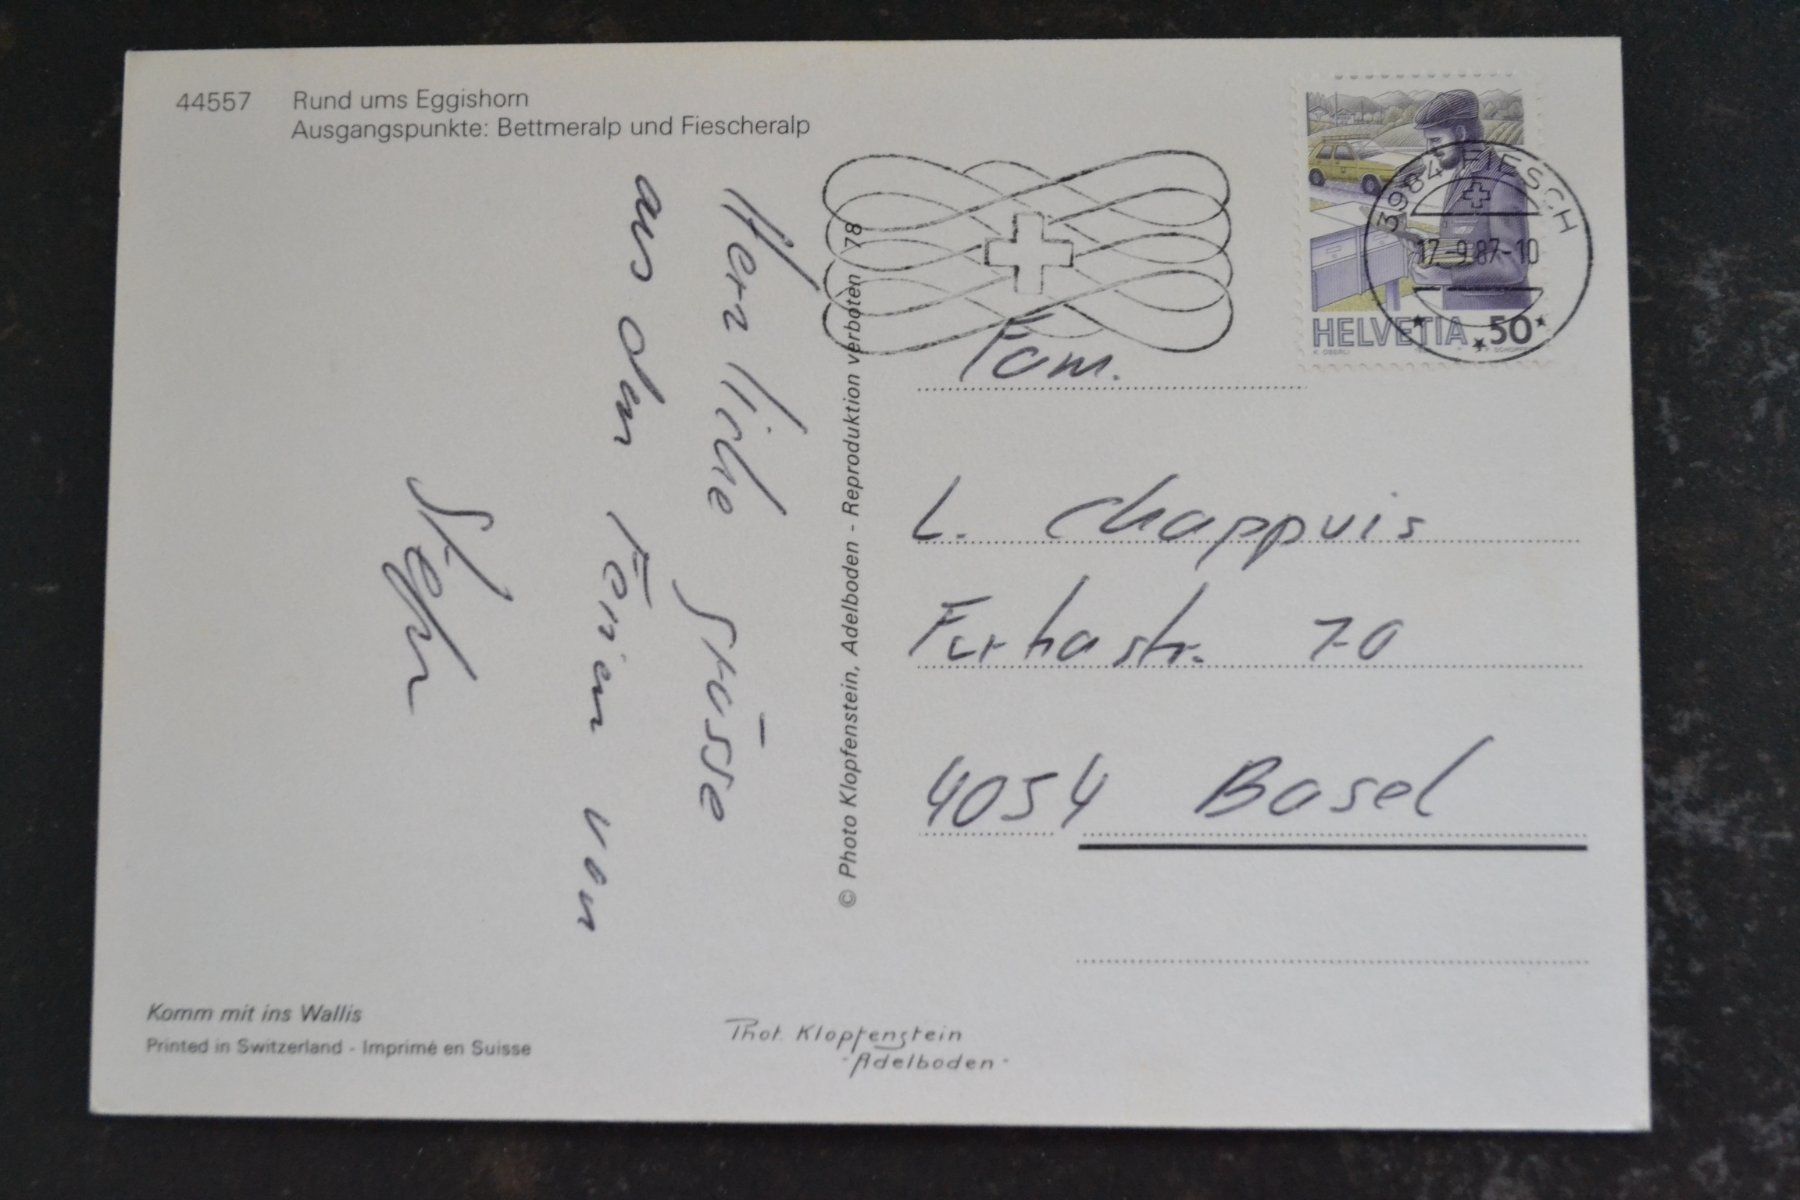 44557 Rund ums Eggishorn
Ausgangspunkte: Bettmeralp und Fiescheralp
Herzliche Grüsse
aus den Ferien von
© Photo Klopfenstein, Adelboden - Reproduktion verboten 78
3984 FIESCH
17.-9.87-10
HELVETIA 50
K. OBERLI
Fam.
L. Chappuis
Furkastr. 70
4054 Basel
Komm mit ins Wallis
Printed in Switzerland - Imprimé en Suisse
Phot. Klopfenstein
- Adelboden -